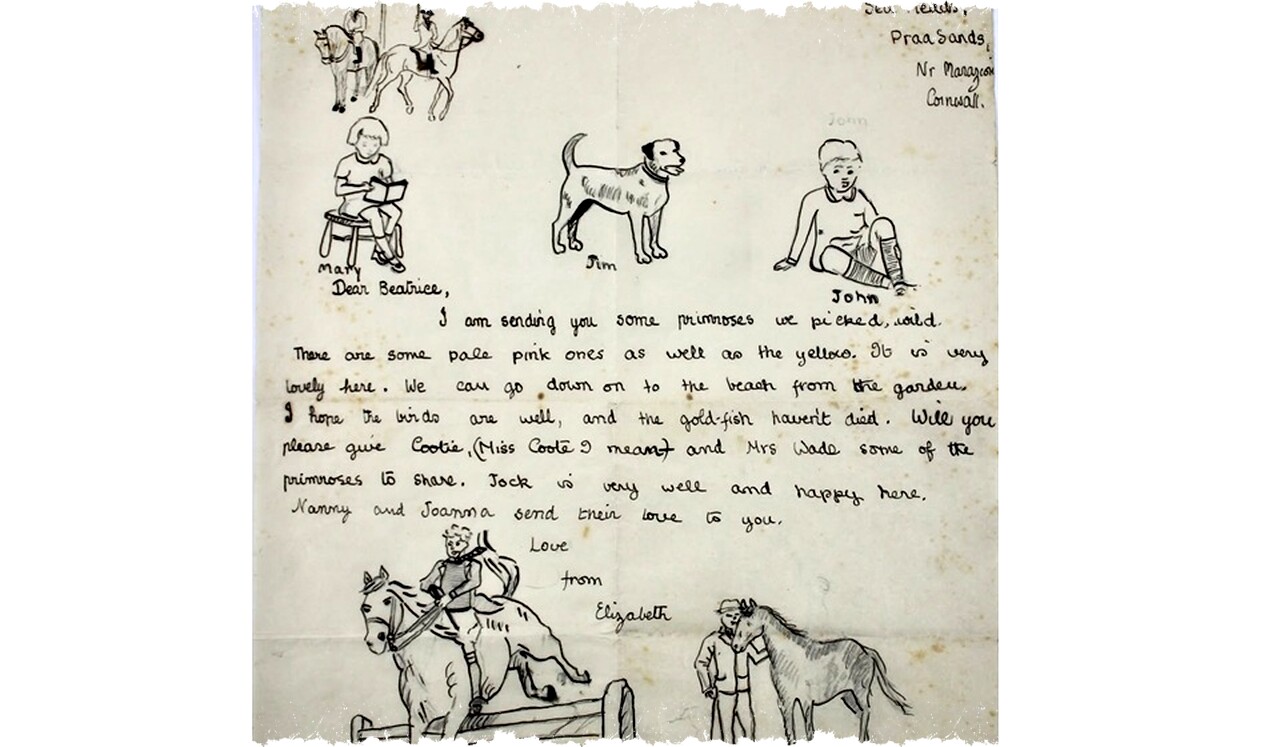 Praa Sands,
Nr
Cornwall.
John
Mary
Jim
John
Dear Beatrice,
I am sending you some primroses we picked, wild.
There are some pale pink ones as well as the yellow. It is very
lovely here. We can go down on to the beach from the garden.
I hope the birds are well, and the gold-fish haven't died. Will you
please give Cootie, (Miss Coote I mean) and Mrs Wade some of the
primroses to share. Jock is very well and happy here.
Nanny and Joanna send their love to you.
Love
from
Elizabeth